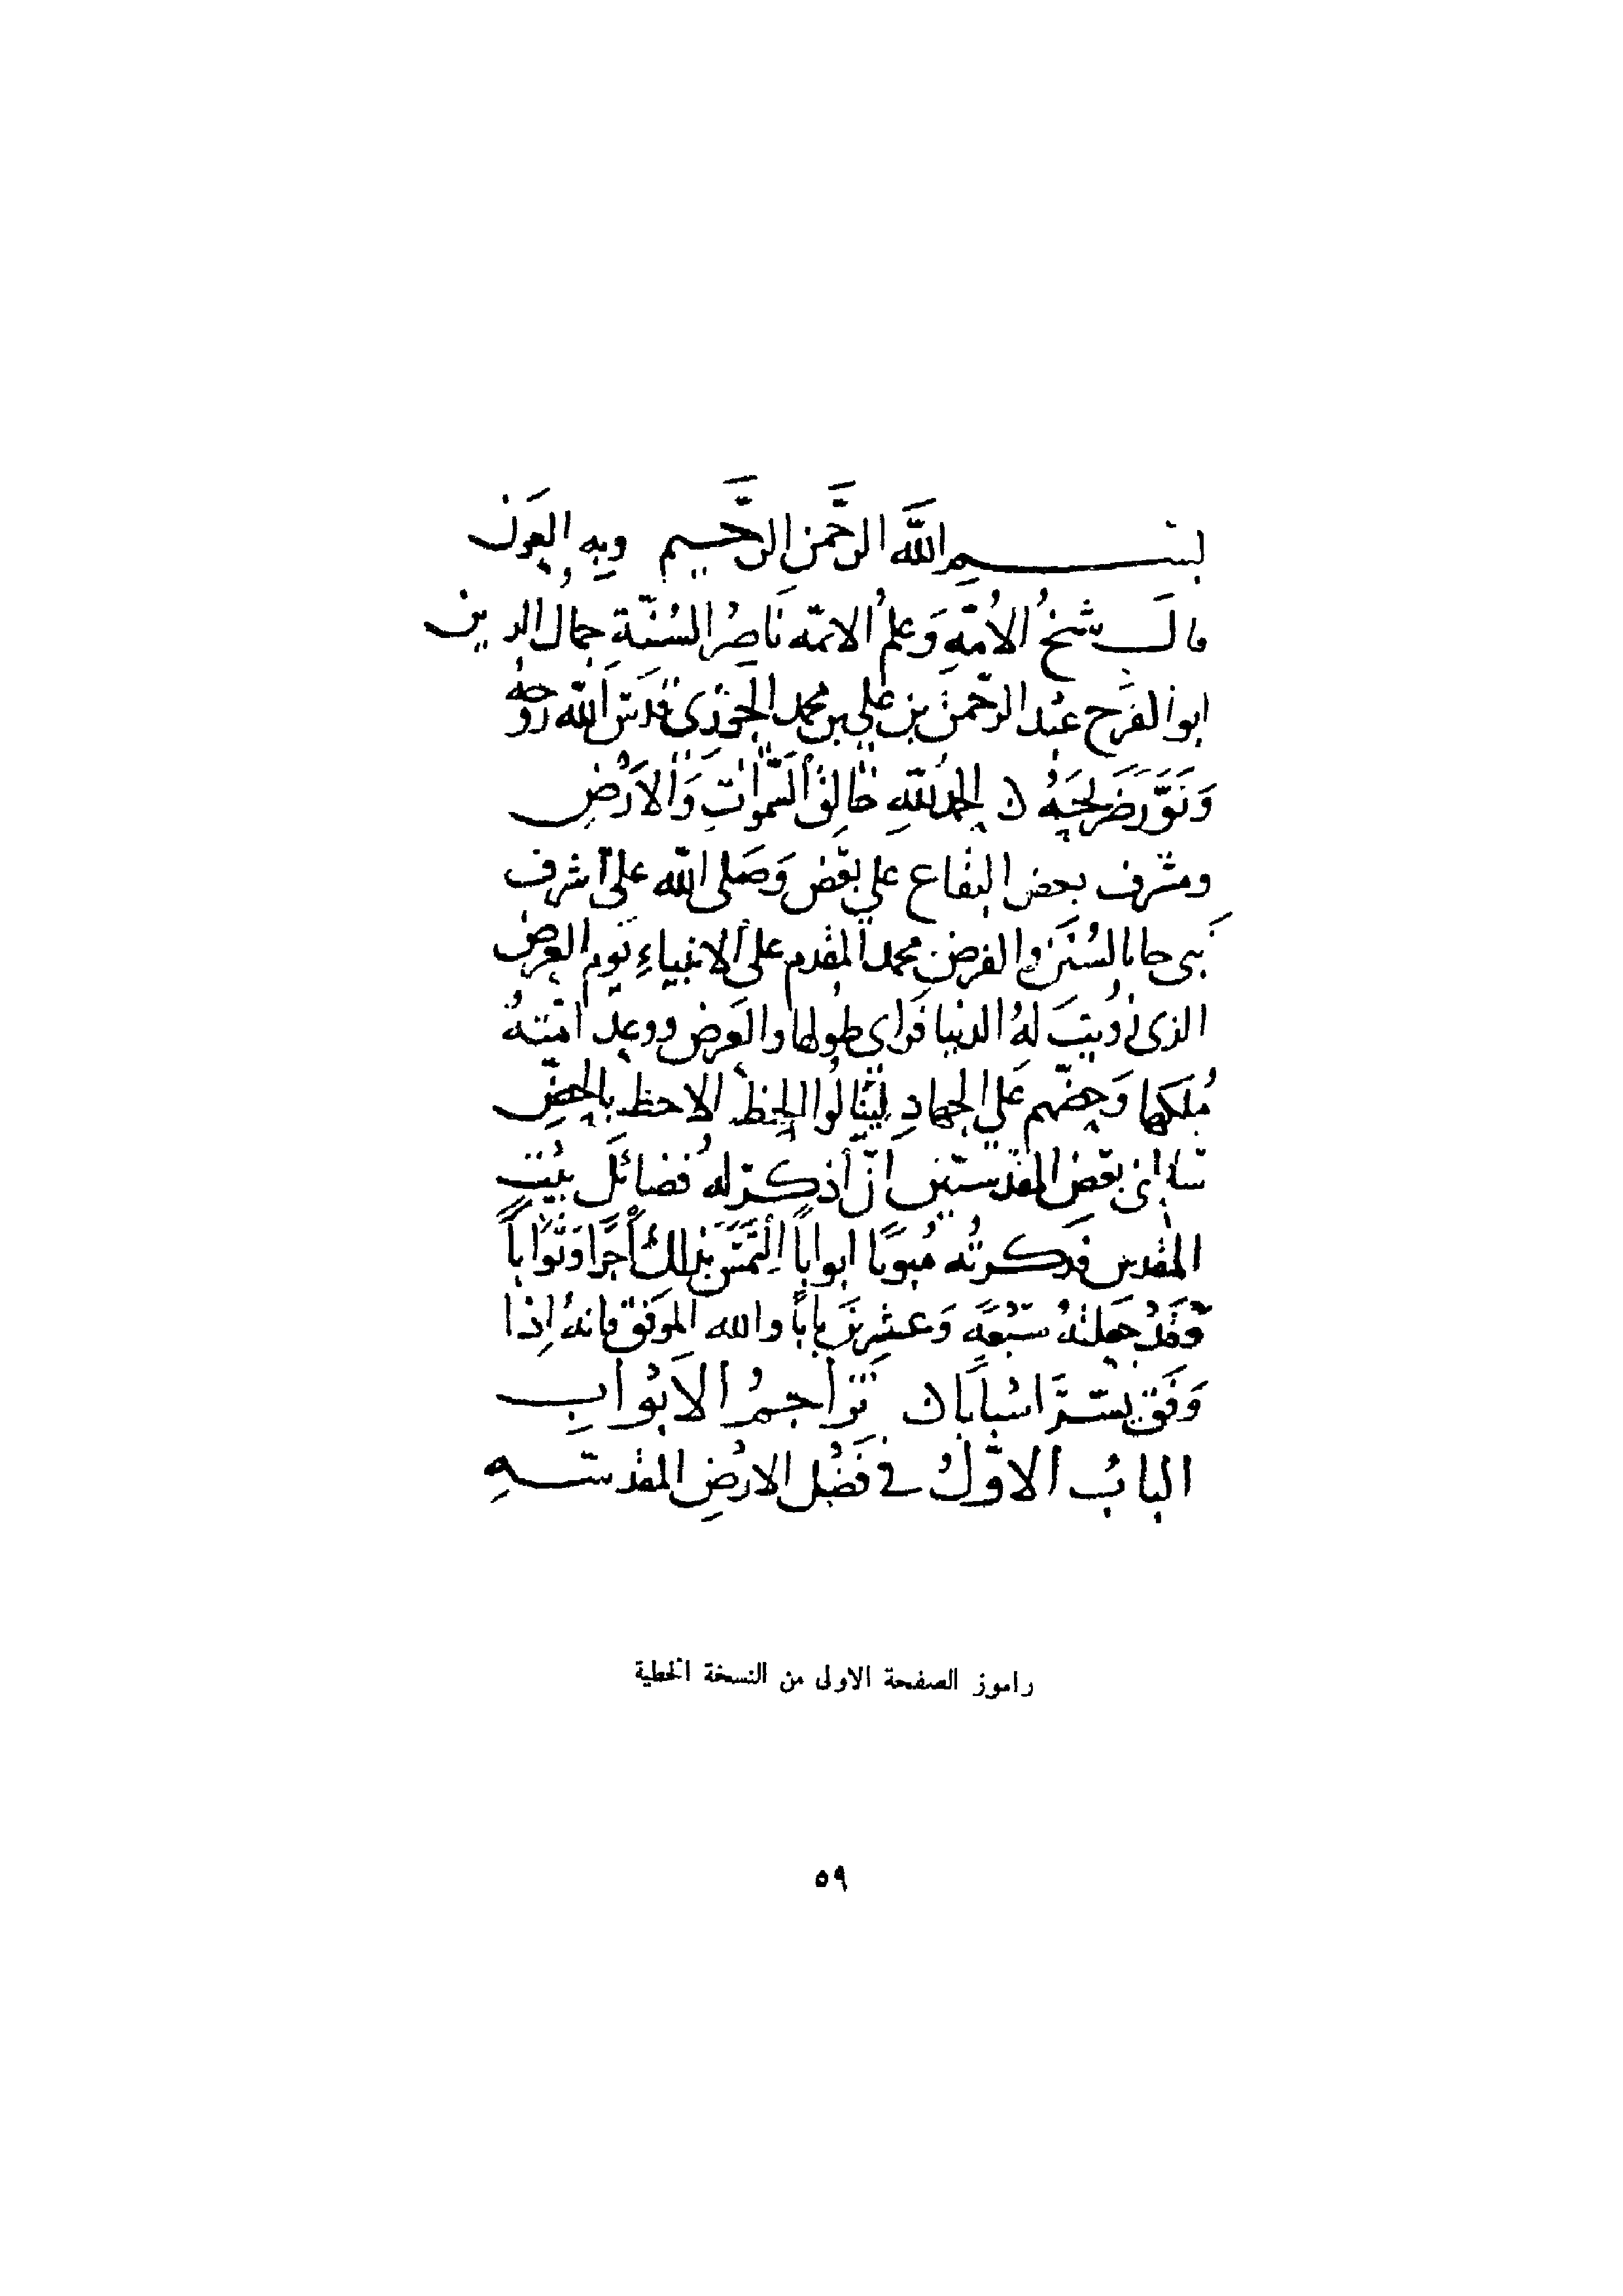 بسم الله الرحمن الرحيم وبه العون
قال شيخ الأُمّةِ وَعلمُ الائمّه نَاصِرُ السُنّة جمالُ الدين
ابو الفَرَج عَبْد الرّحمن بن علي بن محمد الجَوزي قَدَّسَ اللهُ رُوحَهُ
وَنَوَّرَ ضَرِيحَهُ ن الحمدُ للّهِ خَالِق السَّمواتِ وَالأَرْضِ
ومشرف بعض البقاع علي بَعْض وَصَلى اللّه عَلَى اشرف
نَبي جانا بالسُنَن والفرض محمد المقدم على الانبياءِ يَوم العَرض
الذي زُويت لَهُ الدنيا فَرَاى طولها والعَرض ووعد امّتهُ
مُلكَها وَحضّهم عَلي الجهادِ لِيَنَالُوا الحظ الاحظ بالحضّ
سَاَلني بَعْض المقدسيّين أنْ أذكرَ لهُ فضائل بَيْتِ
المقدس فَذكرتُه مُبوبًا ابواباً التَمَسَ بذلك أَجْرًا وَثَوَاباً
وَقَدْ جَعلتُهُ سَبْعَةً وَعشرِينَ بَاباً والله الموَفق فانهُ إِذا
وَفّق يَسّرَ اسْبَابًا ن تَرَاجمُ الأَبْوابِ
البابُ الأوّلُ في فَضْل الارْضِ المقدسّهِ
راموز الصفحة الاولى من النسخة الخطية
٥٩